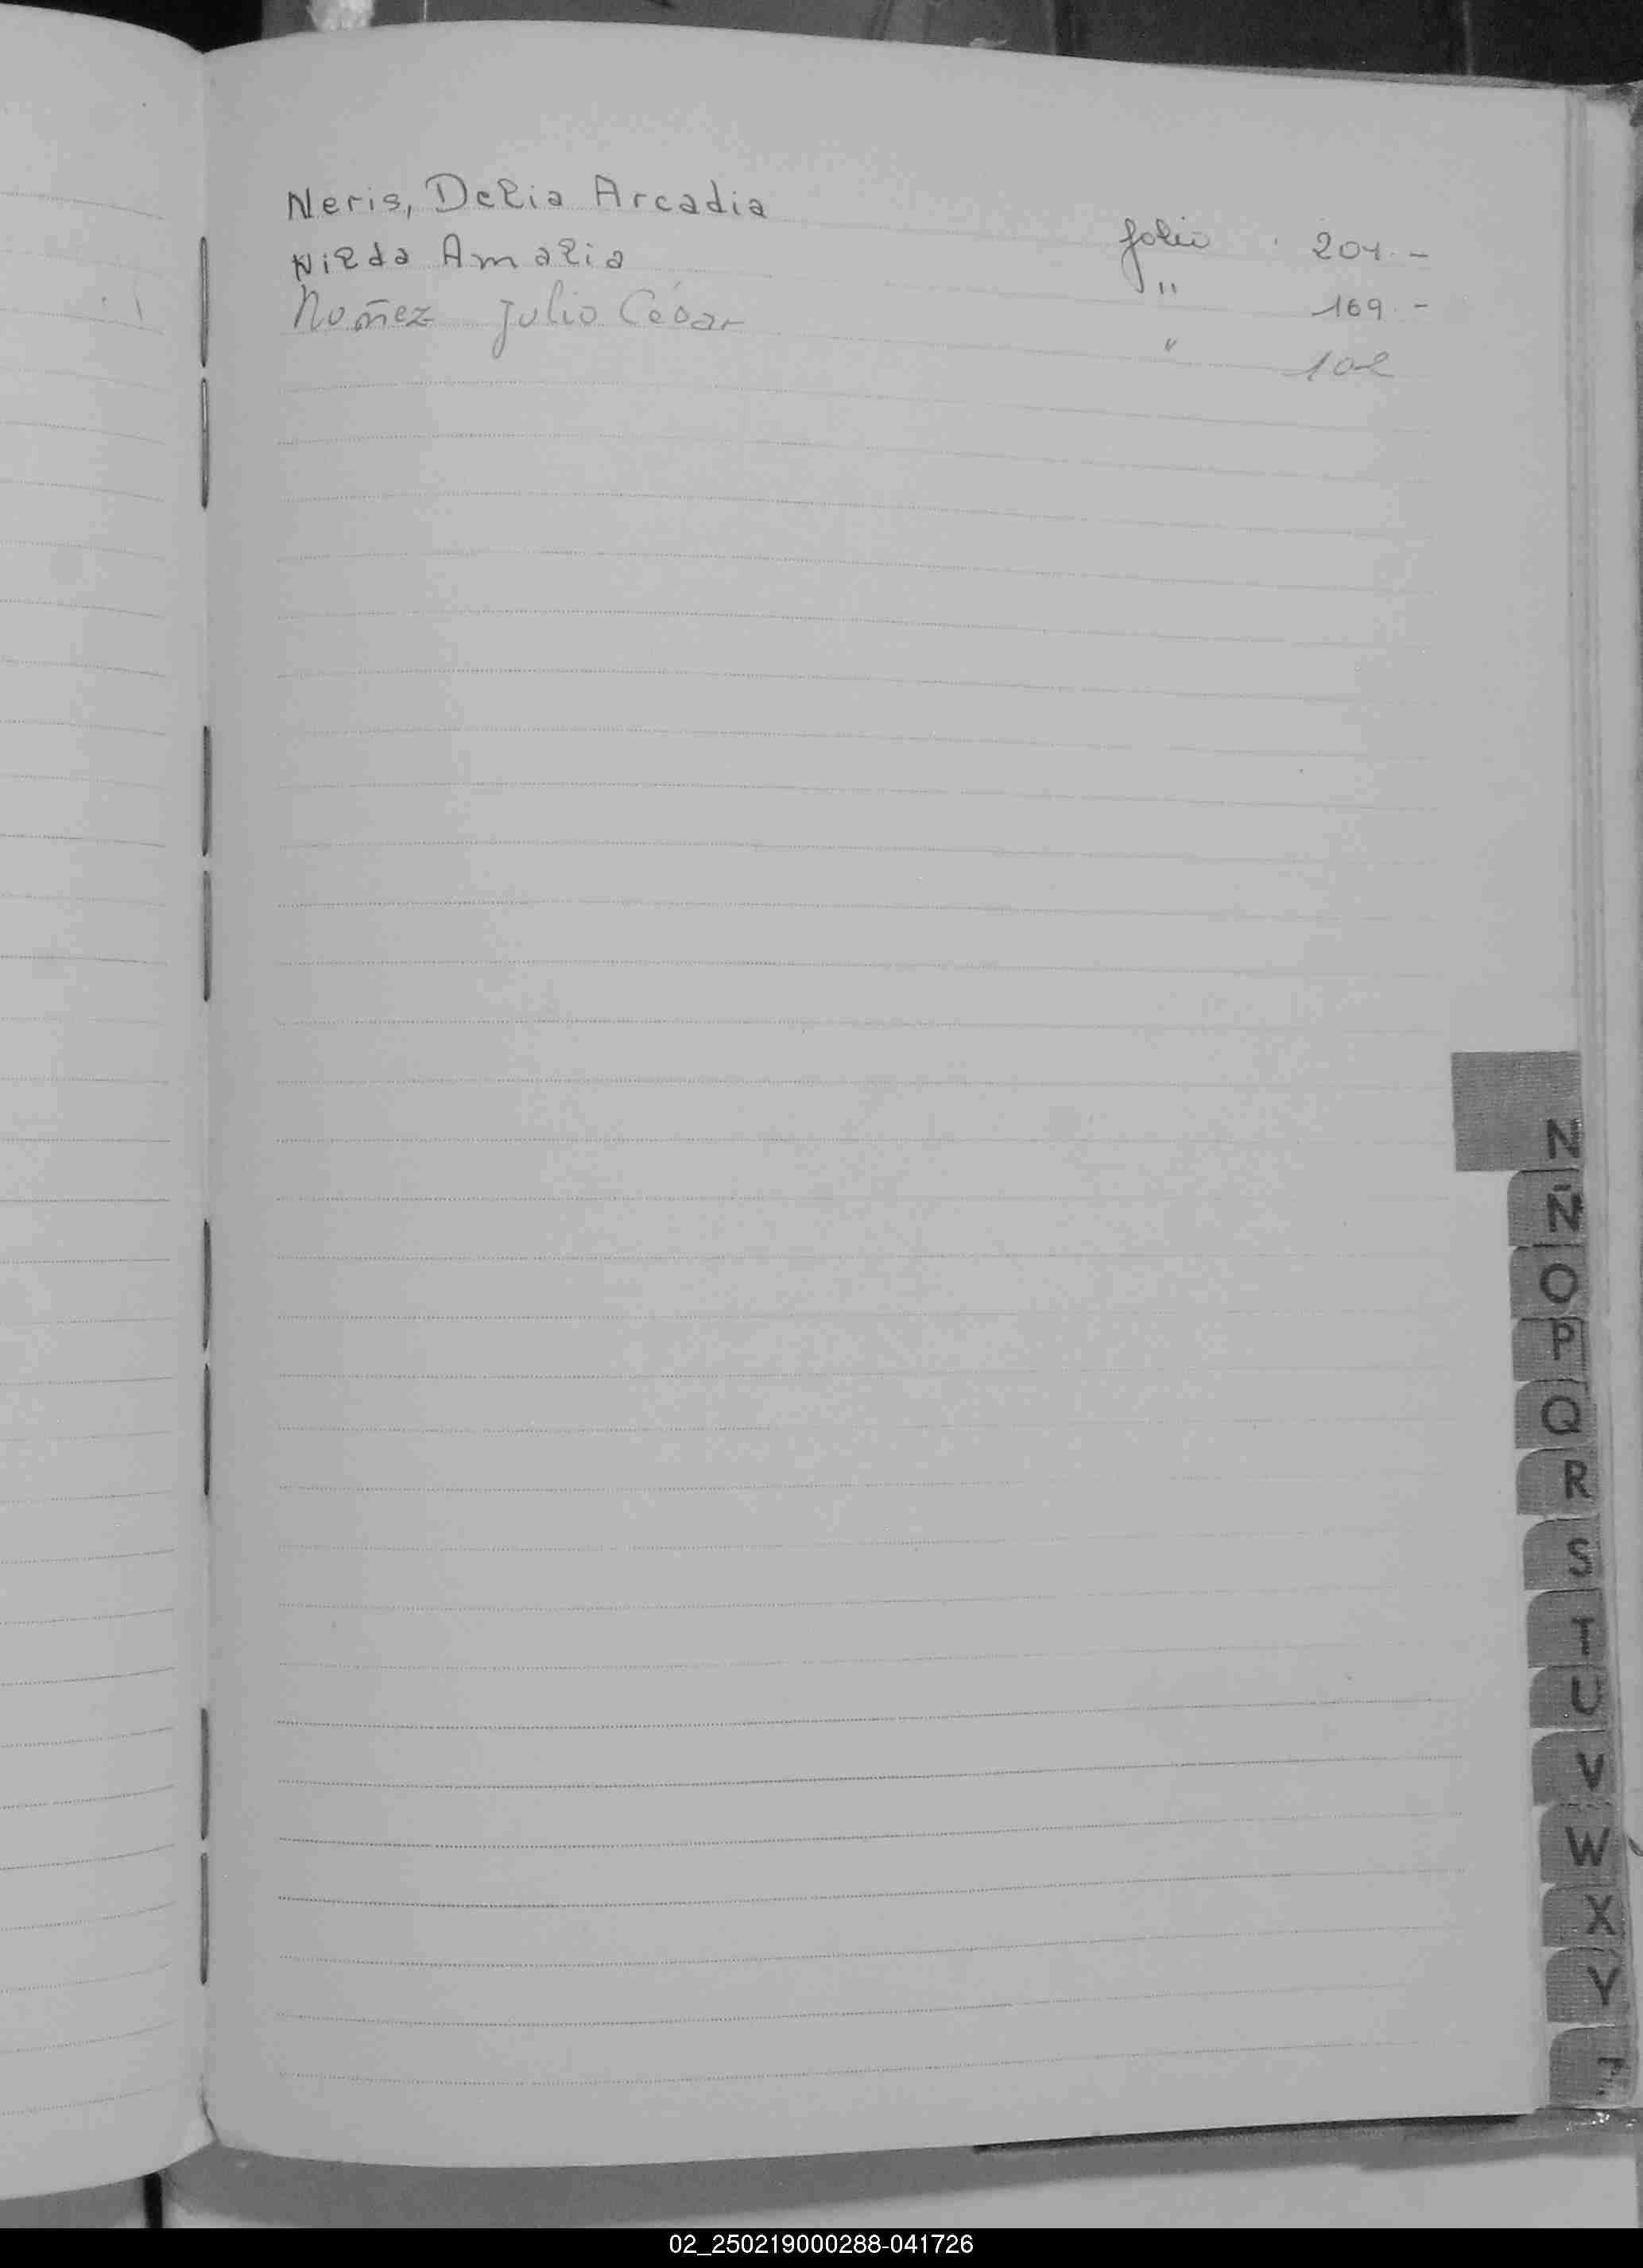 Neris, Delia Arcadia folio 204.-
Nilda Amalia " 169.-
Nuñez Julio César " 102
N
Ñ
O
P
Q
R
S
T
U
V
W
X
Y
02_250219000288-041726